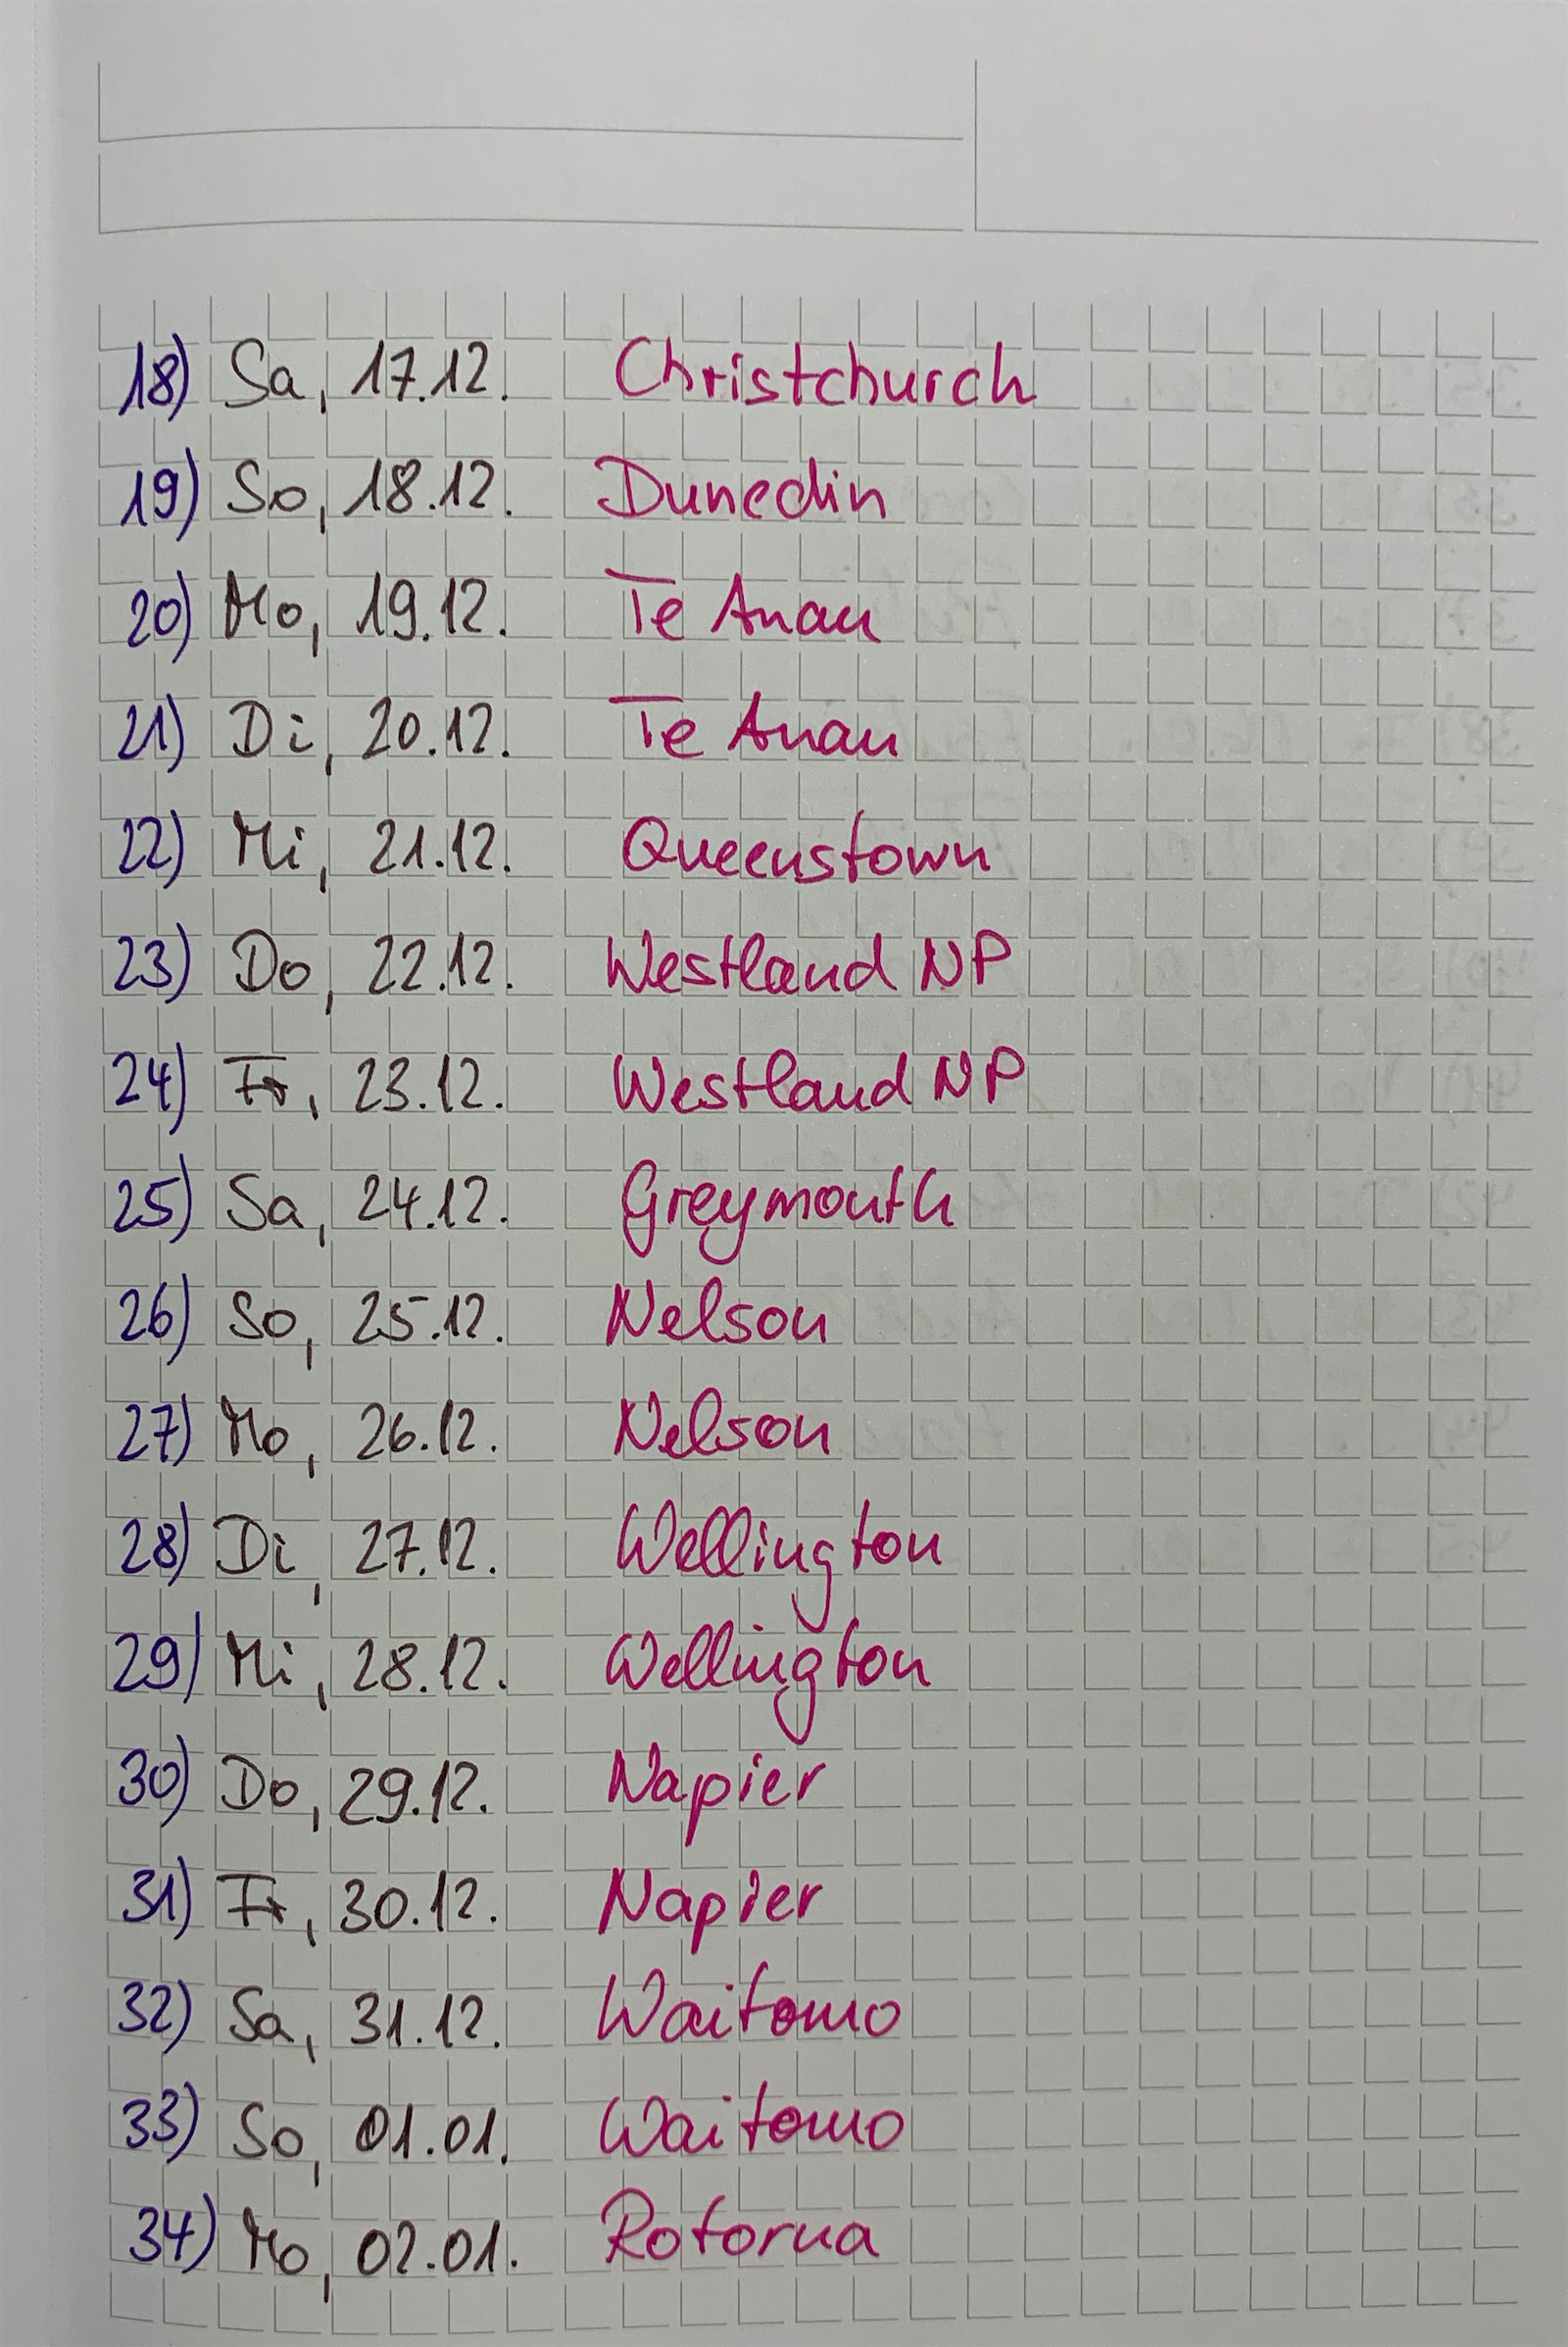 18) Sa, 17.12. Christchurch
19) So, 18.12. Dunedin
20) Mo, 19.12. Te Anau
21) Di, 20.12. Te Anau
22) Mi, 21.12. Queenstown
23) Do, 22.12. Westland NP
24) Fr, 23.12. Westland NP
25) Sa, 24.12. Greymouth
26) So, 25.12. Nelson
27) Mo, 26.12. Nelson
28) Di, 27.12. Wellington
29) Mi, 28.12. Wellington
30) Do, 29.12. Napier
31) Fr, 30.12. Napier
32) Sa, 31.12. Waitomo
33) So, 01.01. Waitomo
34) Mo, 02.01. Rotorua